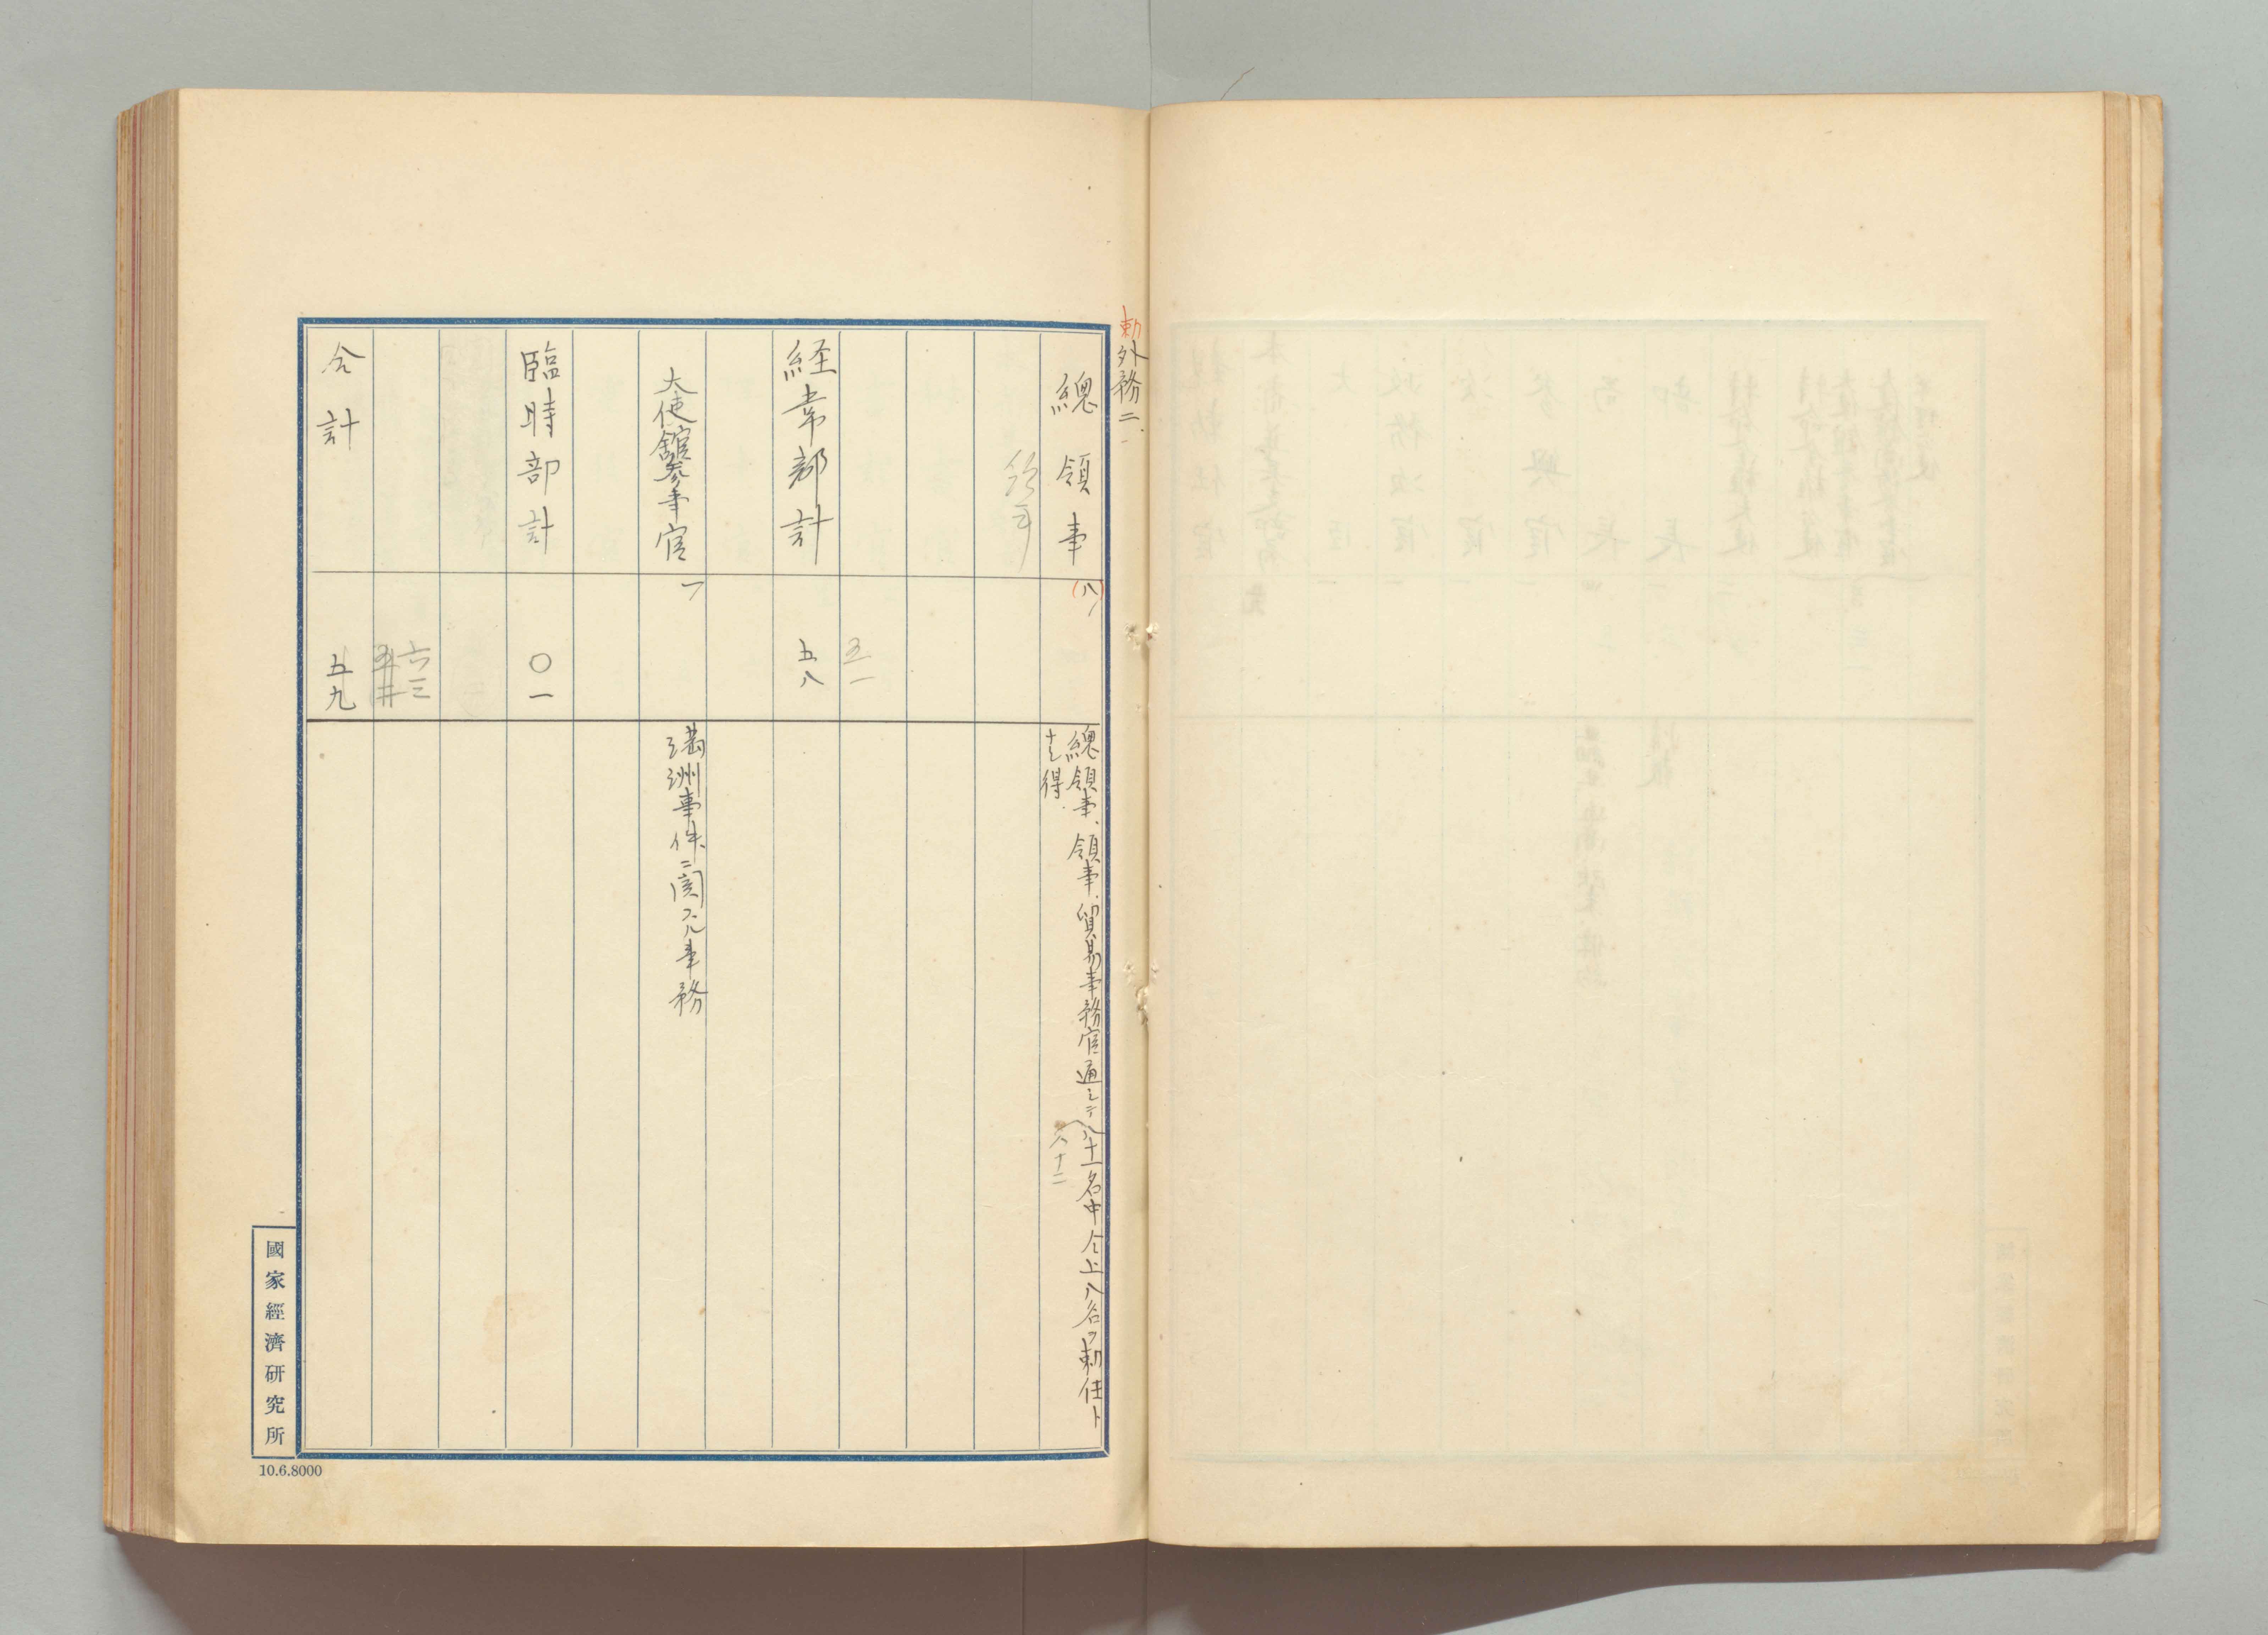 勅外務二、
總領事
(八)
總領事、領事、貿易事務官通シテ八十一名中仝上八名ヲ勅任ト
八十二
ナシ得
五一
経常部計
五八
大使館参事官
一
満洲事件ニ関スル事務
臨時部計
〇一
六三
合計
五九
國家經濟研究所
10.6.8000